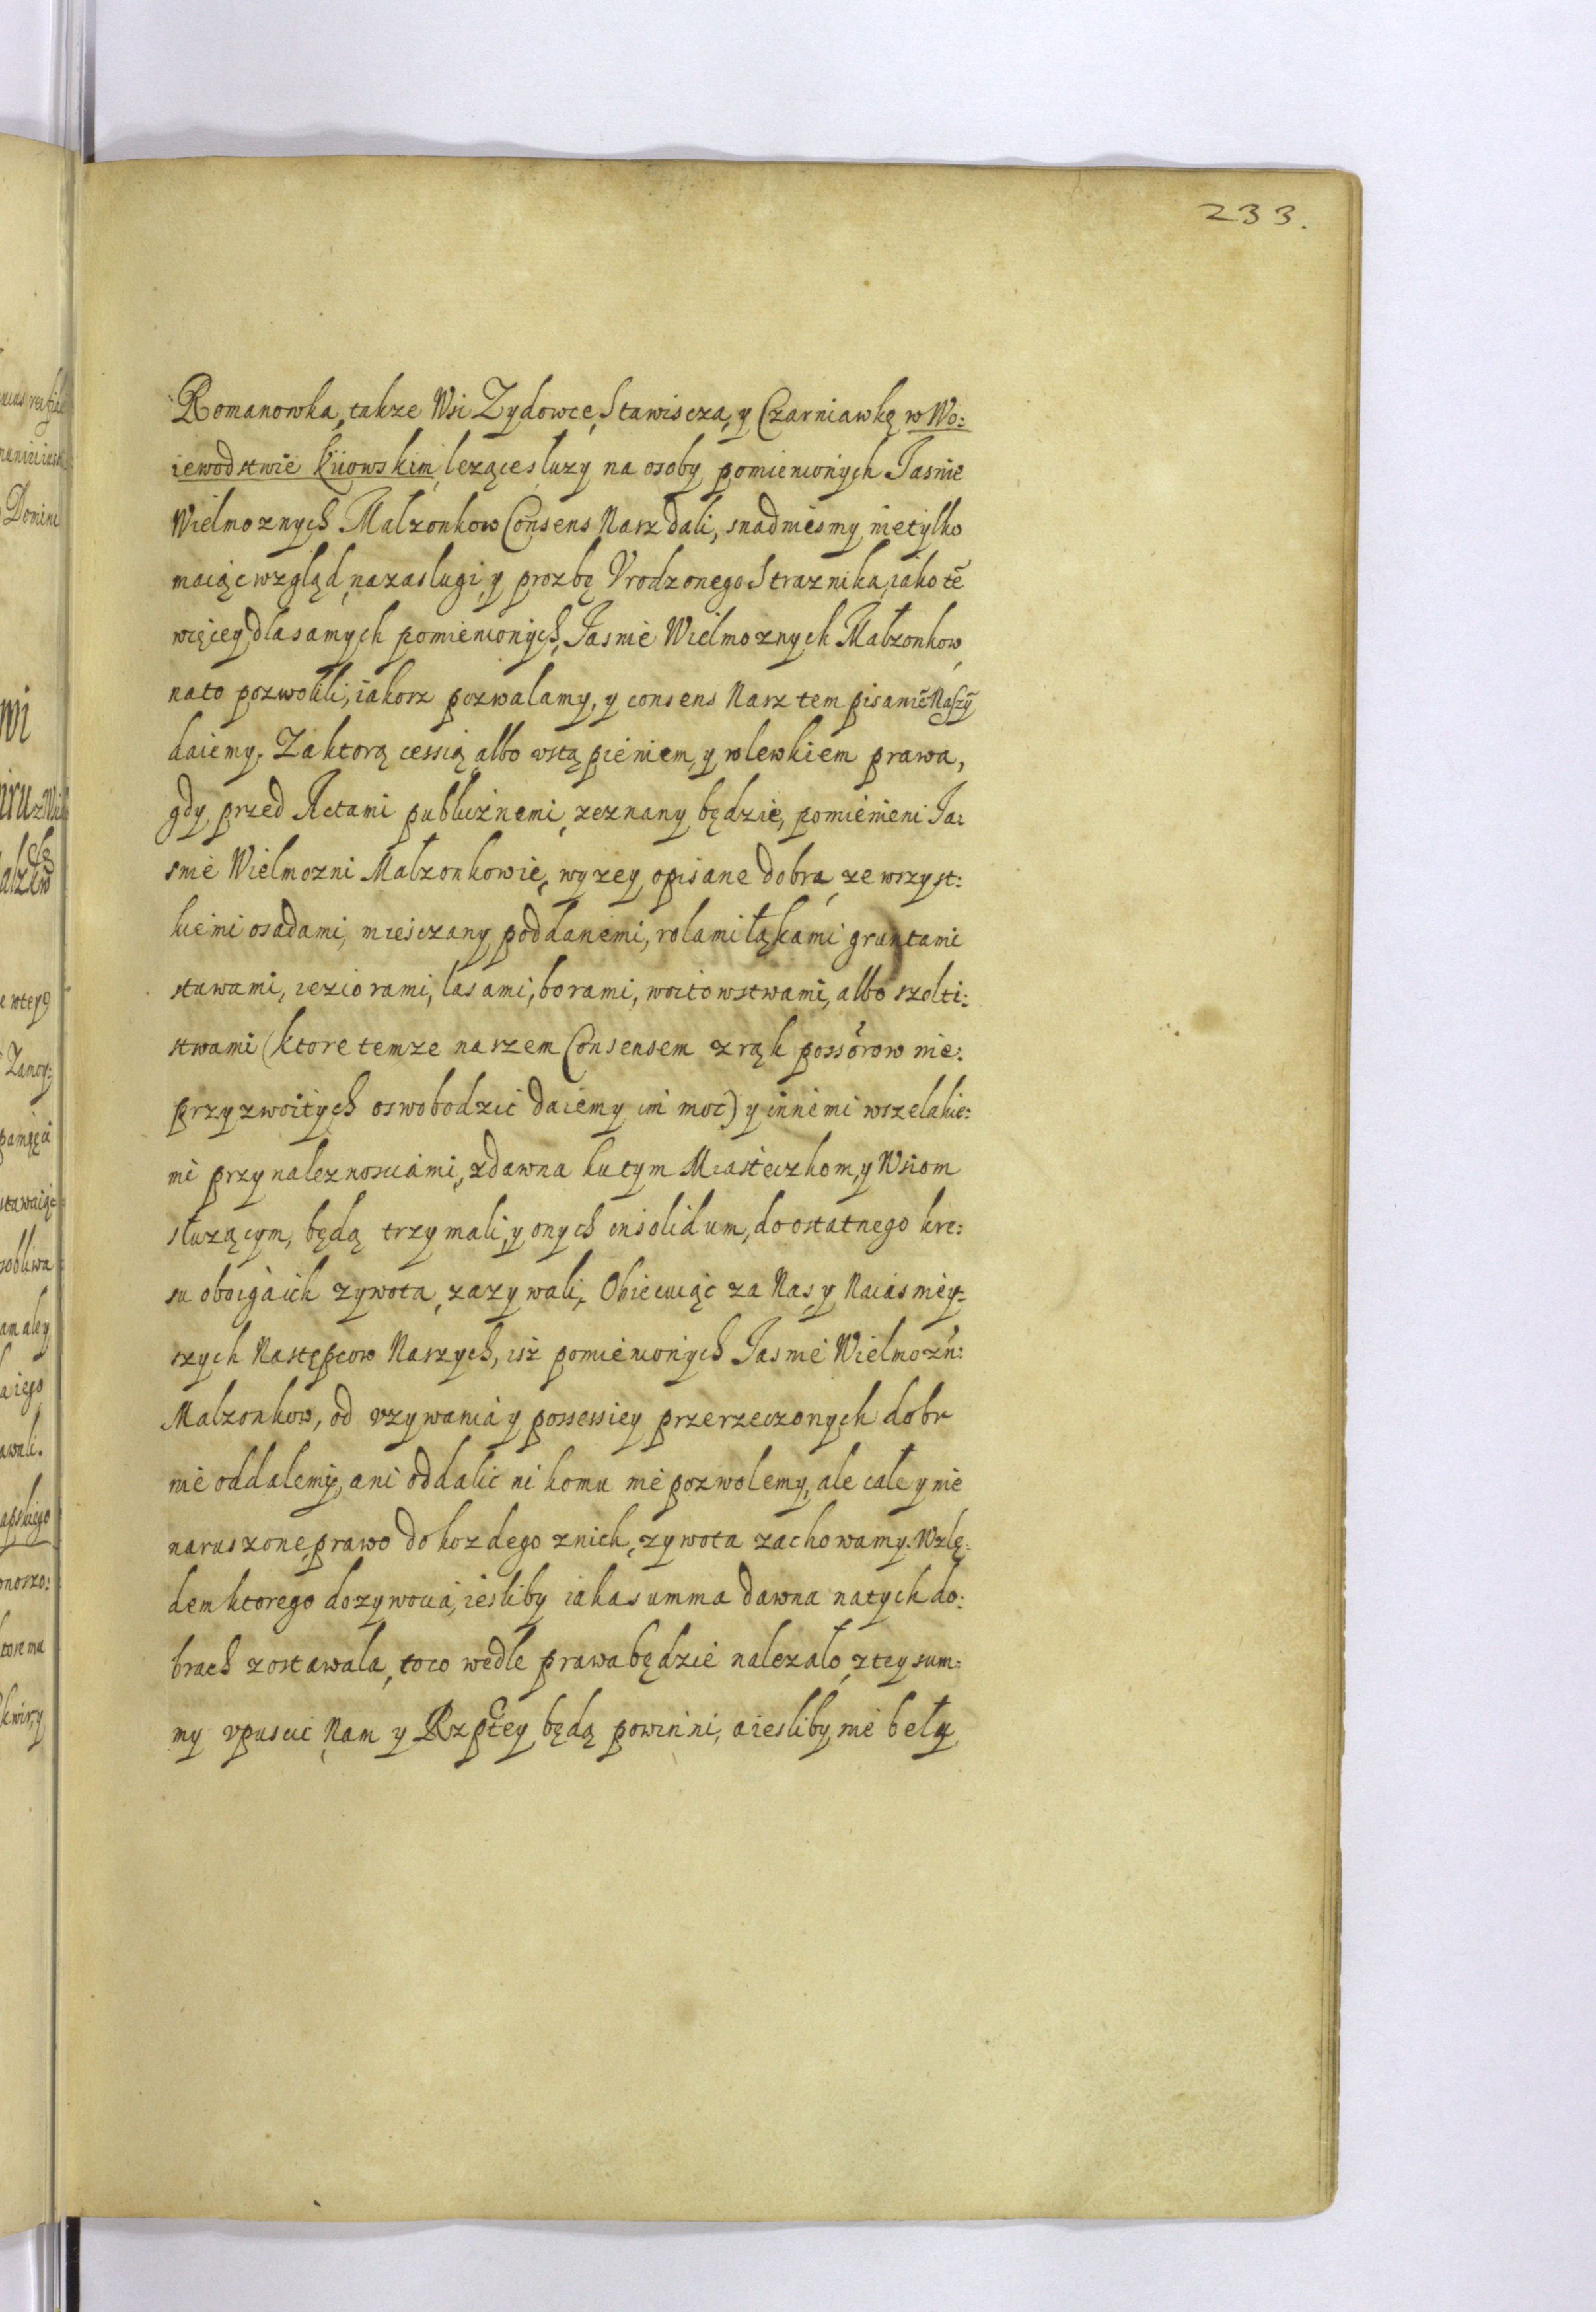 233.
Romanowka, takze Wsi Zydowce, Stawiscza, y Czarniawkę w Wo:
iewodstwie Kiiowskim, lezące słuzy na osoby pomienionych Jasnie
Wielmoznych Malzonkow Consens Nasz dali, snadniesmy nietylko
maiąc wzgląd, na zaslugi, y prozbę Vrodzonego Straznika, iako tẽ
więcey, dla samych pomienionych, Jasnie Wielmoznych Małzonkow
na to pozwolili, iakosz pozwalamy, y consens Nasz tem pisaniẽ Naszỹ
daiemy. Za ktorą cessią albo vstąpieniem, y wlewkiem prawa,
gdy przed Actami publicznemi, zeznany będzie, pomienieni Ja:
snie Wielmozni Małzonkowie, wyzey opisane dobra, ze wszyst:
kiemi osadami, miesczany, poddanemi, rolami łąkami gruntami
stawami, ieziorami, lasami, borami, woitowstwami, albo szolti:
stwami (ktore temze naszem Consensem z rąk possorow nie:
przyzwoitych oswobodzic daiemy im moc) y innemi wszelakie:
mi przynaleznosciami, zdawna ku tym Miasteczkom, y Wsiom
słuzącym, będą trzymali, y onych insolidum, do ostatnego kre:
su oboiga ich zywota, zazywali, Obiecuiąc za Nas, y Naiasniey:
szych Następcow Naszych, isz pomienionych Jasnie Wielmozn:
Malzonkow, od vzywania y possessiey przerzeczonych dobr
nie oddalemy, ani oddalic nikomu nie pozwolemy, ale cale y nie
naruszone, prawo do kozdego znich, zywota zachowamy. Wzlę:
dem ktorego dozywocia, iesliby iaka summa dawna na tych do:
brach zostawala, to co wedle prawa będzie nalezało, z tey sum:
my vpuscic Nam y Rzpltey będą powinni, a iesliby nie beły